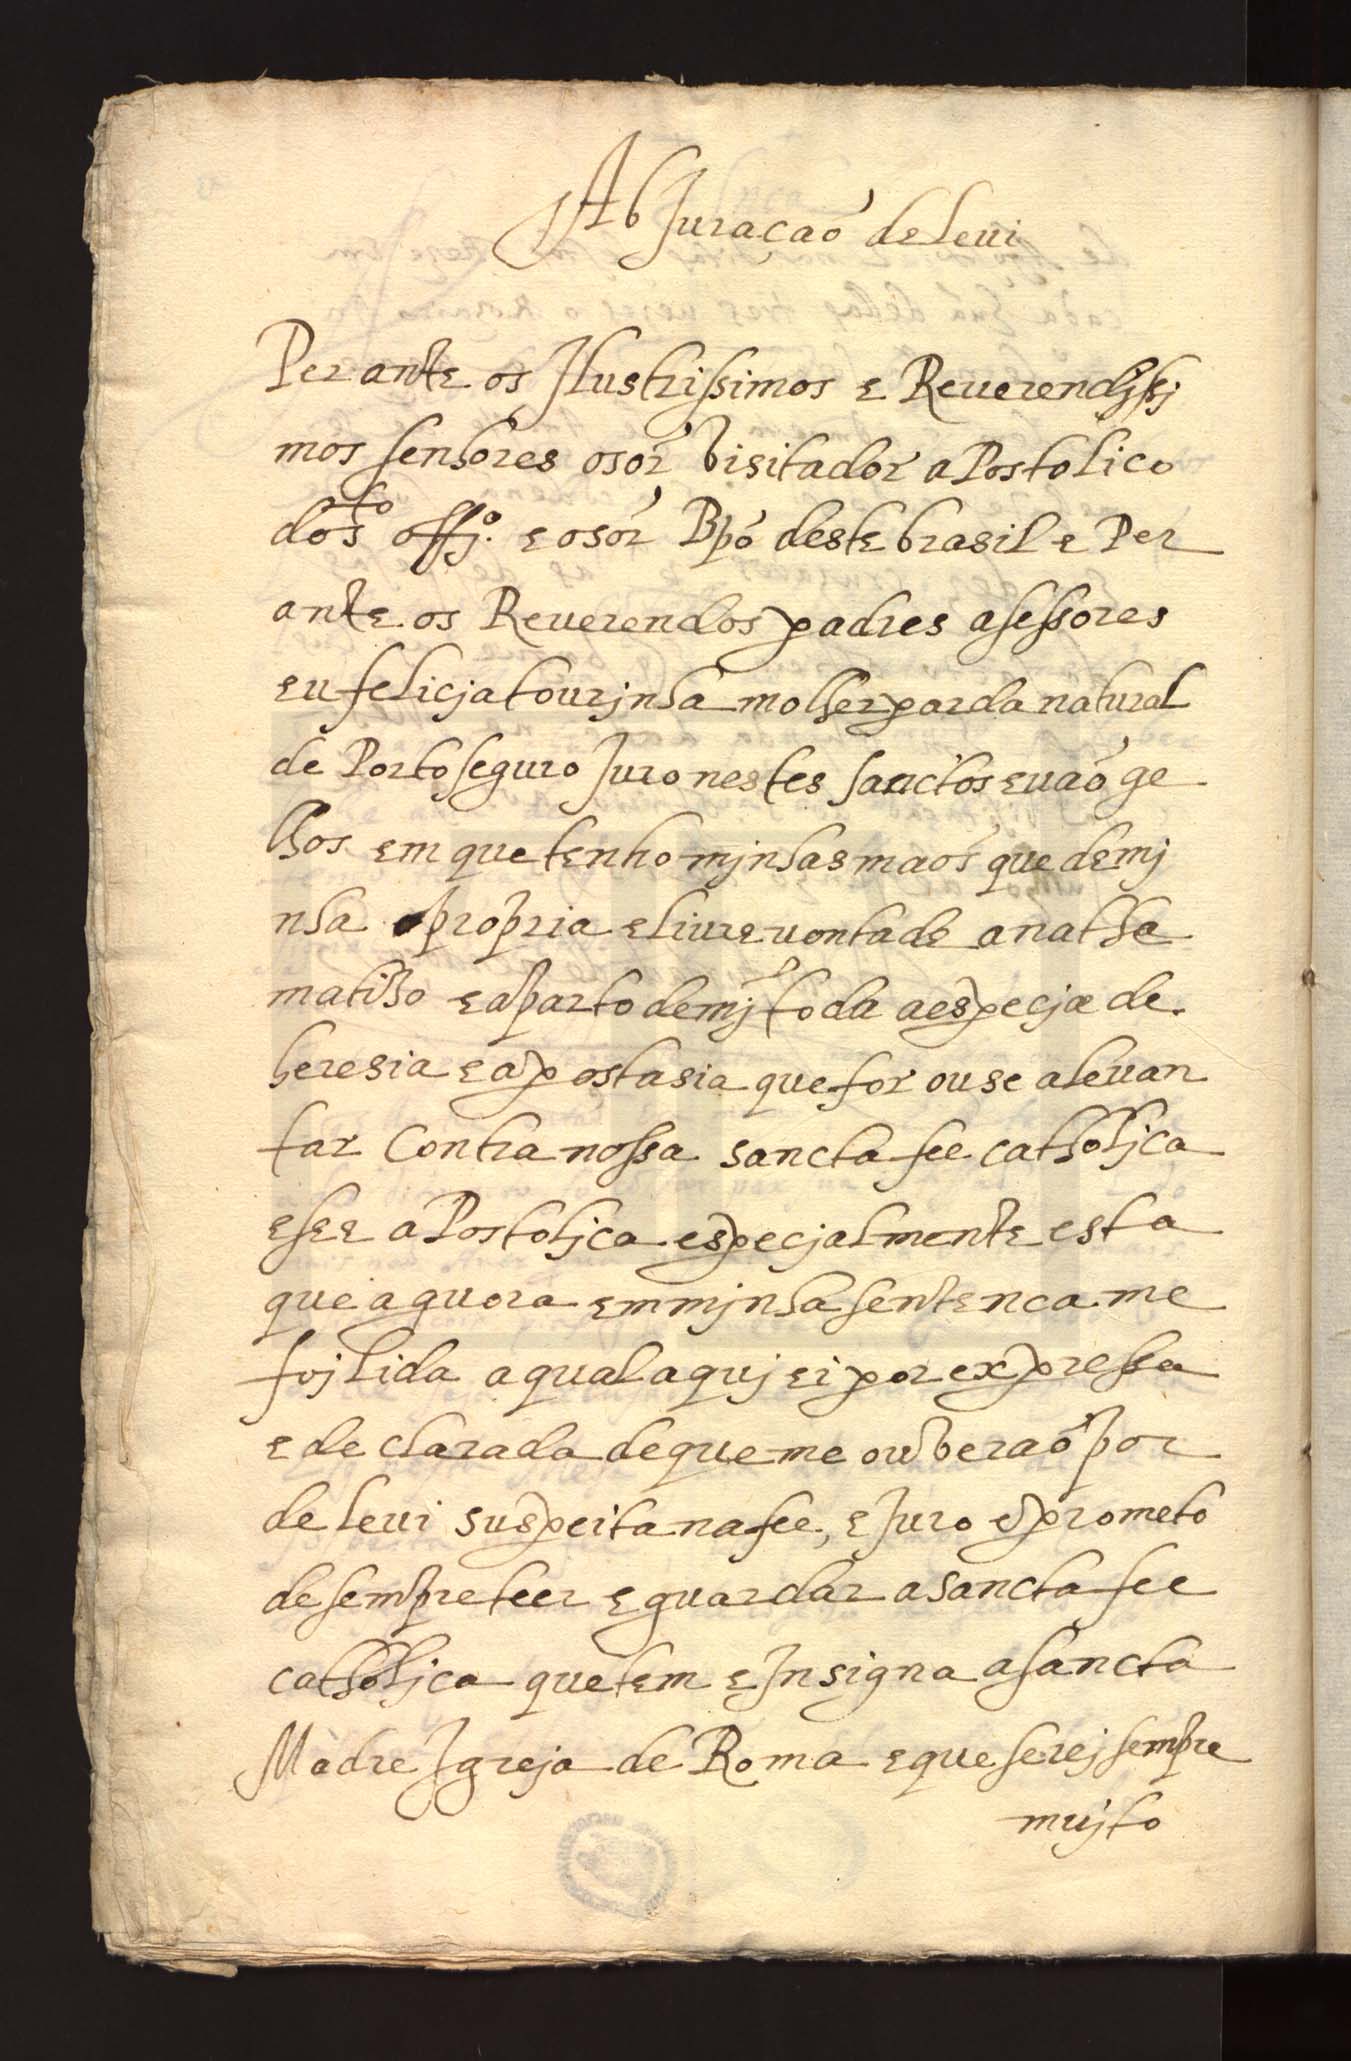 AbJuraçaõ de Leui
Perante os Jlustrissimos e Reuerendissi
mos senhores osõr Visitador apostolico
dos.to offj.º e osõr Bpõ deste brasil e Per
ante os Reuerendos padres asessores
eu felicja tourjnha molher parda natural
de Porto seguro Juro nestes sanctos euaõge
lhos em que tenho mjnhas maõs que de mj
nha propria e liure vontade anathe
matizo e aparto de mj toda a especja de
heresia e apostasia que for ou se aleuan
tar contra nossa sancta fee catholjca
e see apostoljca especjalmente esta
que aguora em mjnha sentenca me
foj lida a qual aquj ei por expressa
e declarada de que me ouueraõ por
de leui suspeita na fee, e Juro e prometo
de sempre teer e guardar a sancta fee
catholjca que tem e Insigna a sancta
Madre Igreja de Roma e que serej sempre
mujto